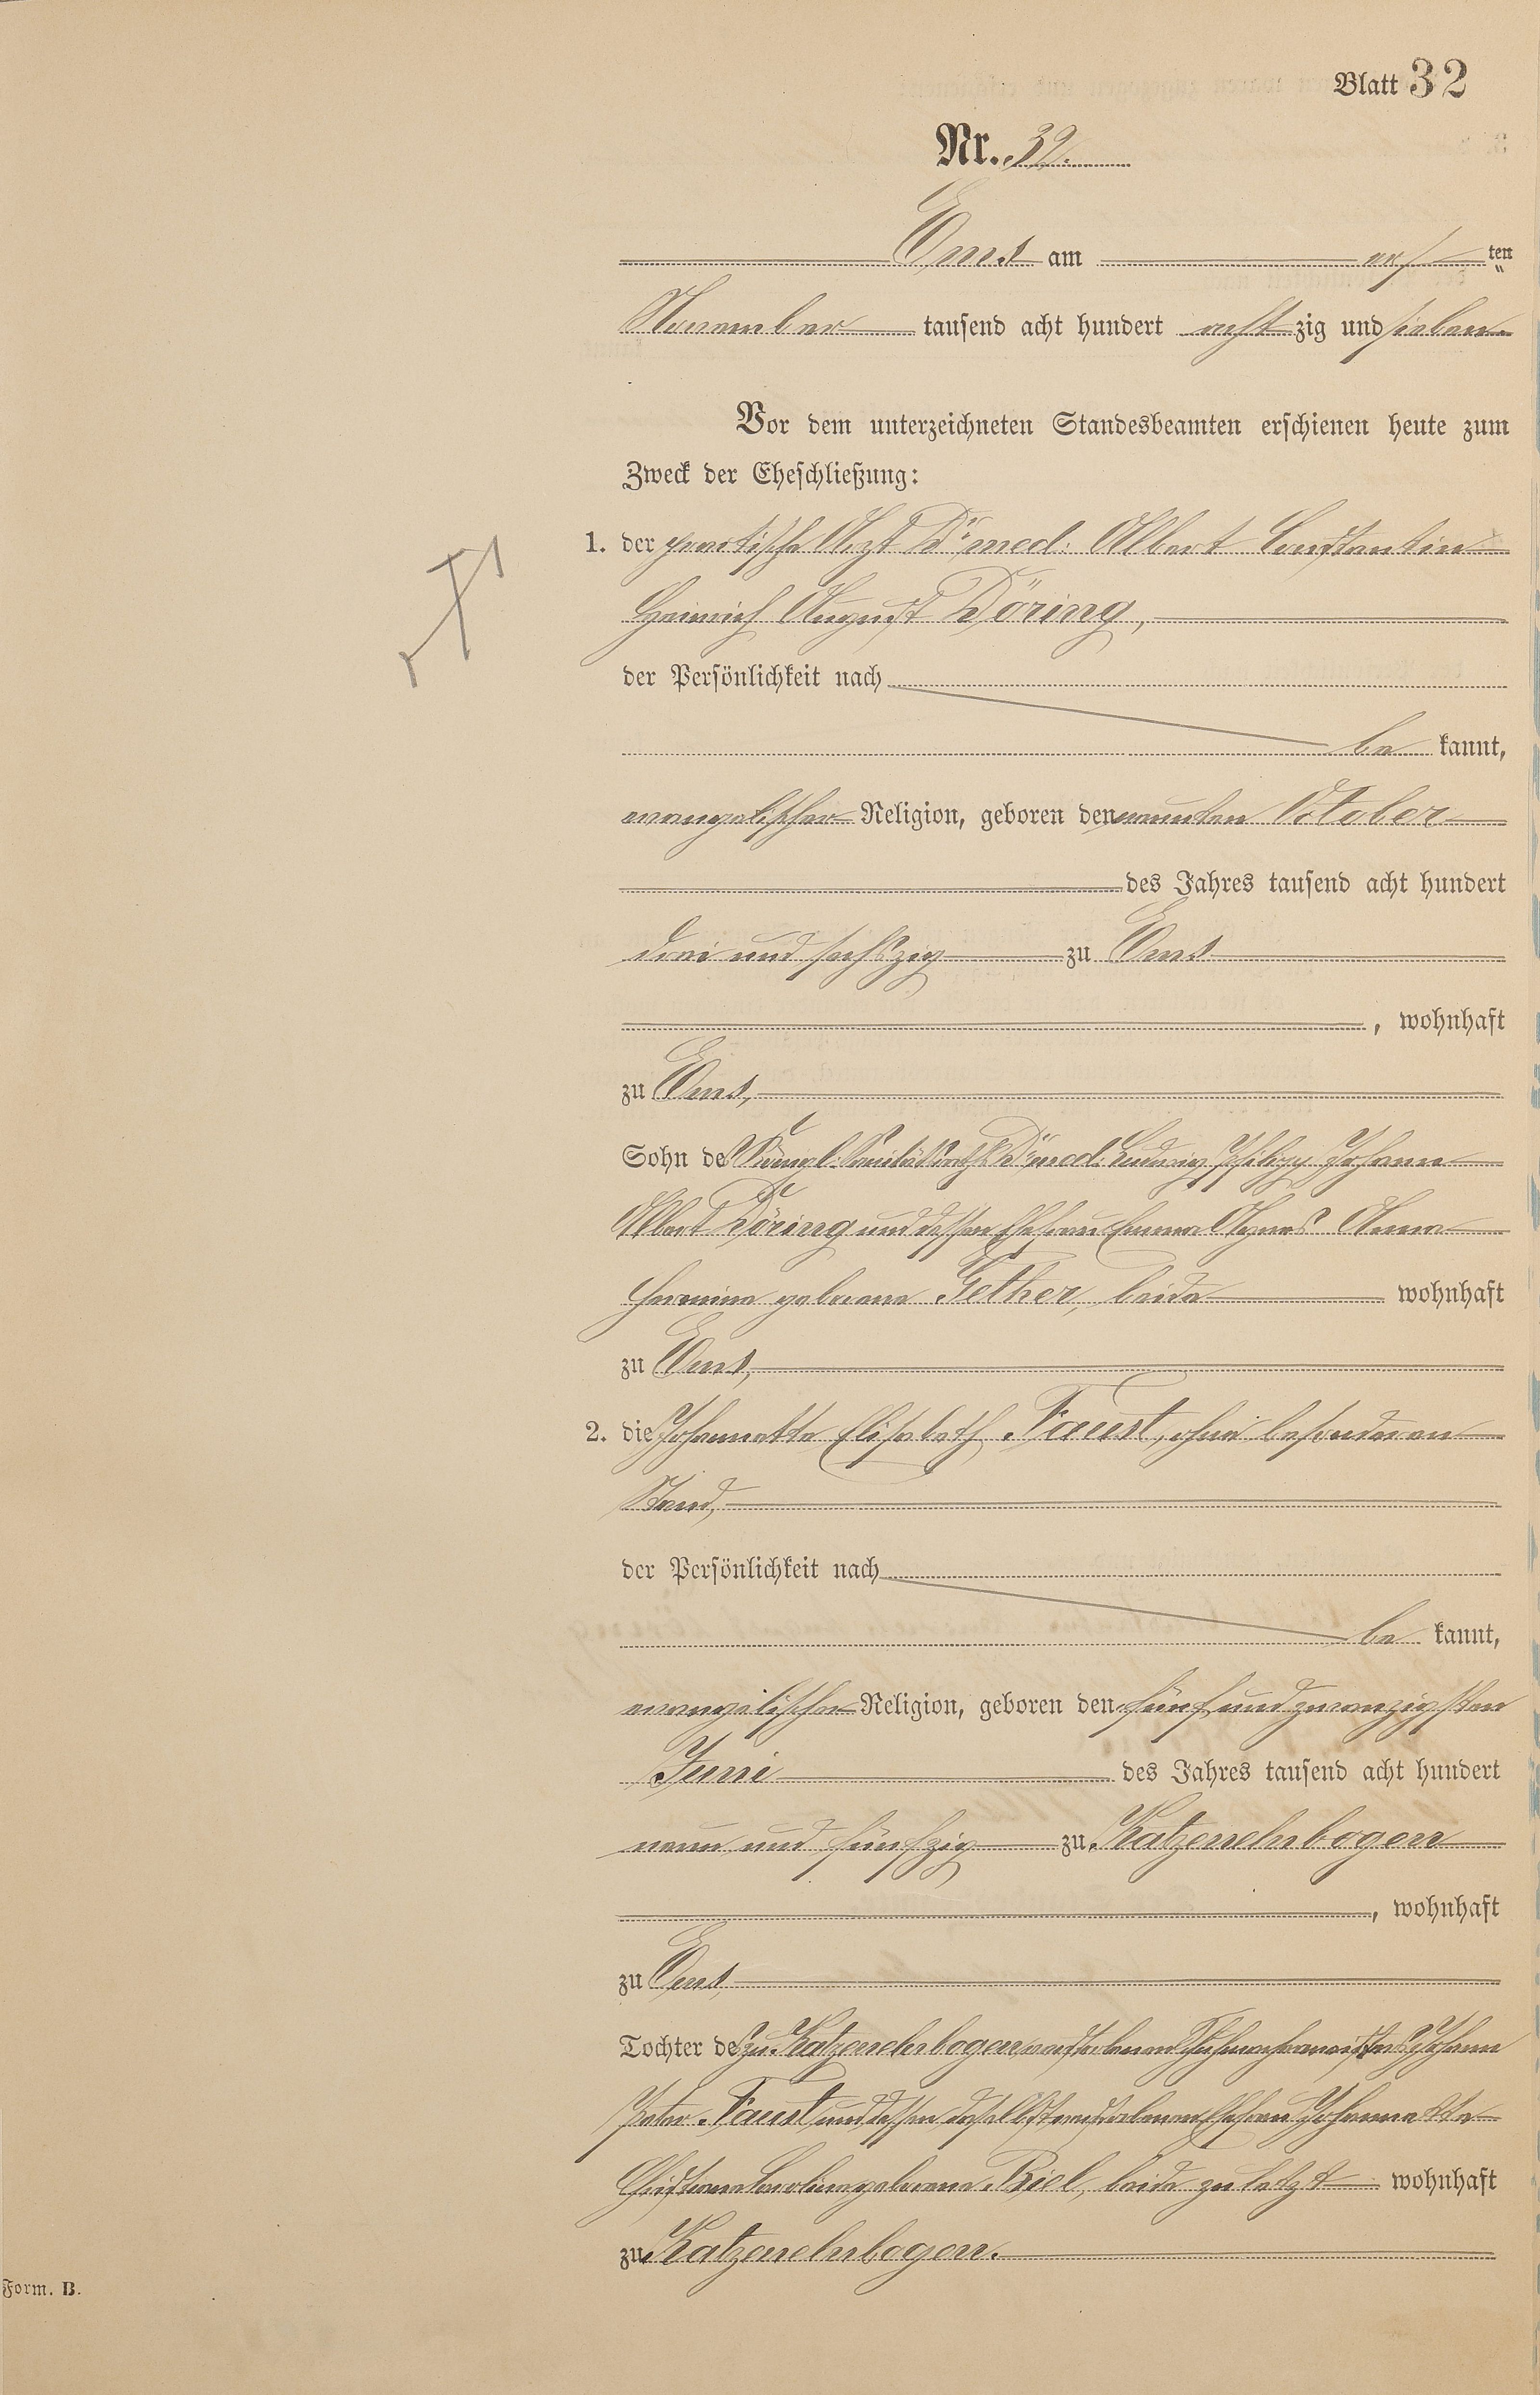 Blatt 32
Nr. 32.
Ems am ersten
November tausend acht hundert achtzig und sieben.
Vor dem unterzeichneten Standesbeamten erschienen heute zum
Zweck der Eheschließung:
1. der practische Arzt Dr. med. Albert Constantin
Heinrich August Döring,
der Persönlichkeit nach
be kannt,
evangelischer Religion, geboren den neunten October
des Jahres tausend acht hundert
drei und sechszig zu Ems
, wohnhaft
zu Ems,
Sohn des Königl. Sanitätsraths Dr. med. Ludwig Philipp Johann
Albert Döring und dessen Ehefrau Emma Agnes Anna
Hermine geborene Gether, beide wohnhaft
zu Ems,
2. die Johannette Elisabeth Faust, ohne besonderen
Stand,
der Persönlichkeit nach
be kannt,
evangelischer Religion, geboren den fünf und zwanzigsten
Juni des Jahres tausend acht hundert
neun und fünfzig zu Katzenelnbogen
, wohnhaft
zu Ems
Tochter des zu Katzenelnbogen verstorbenen Johann
Peter Faust und dessen daselbst verstorbenen Ehefrau Johannette
Christiane Caroline geborene Biel, beide zuletzt wohnhaft
zu Katzenelnbogen.
Form. B.